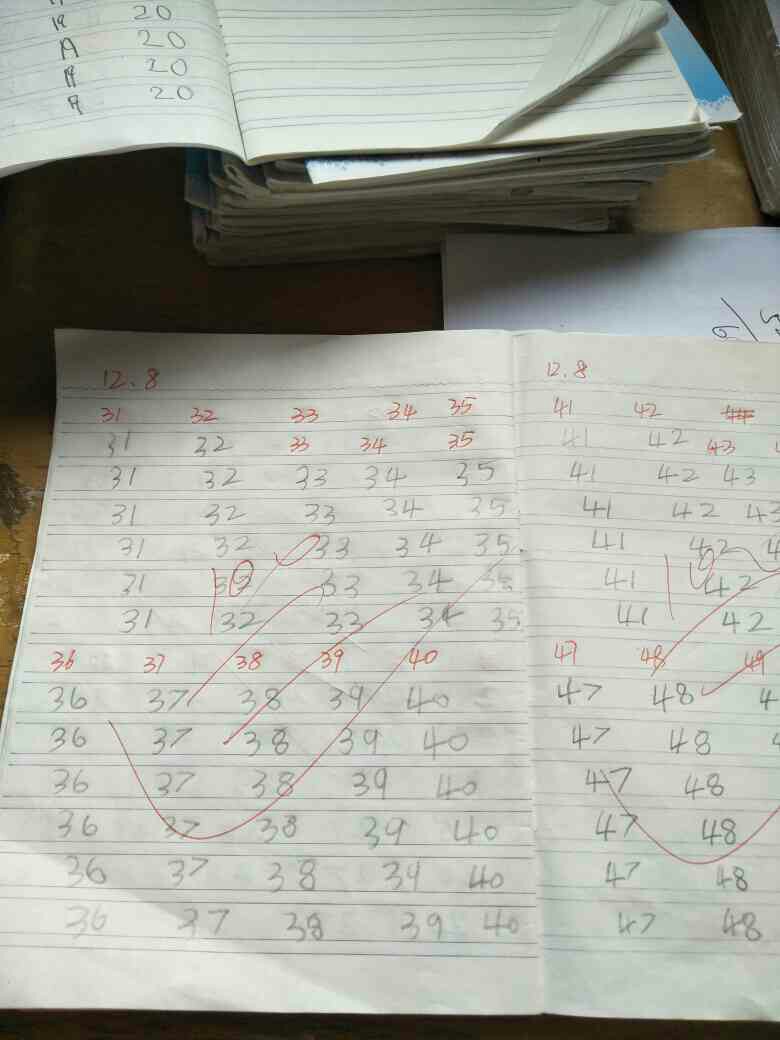 19 20
A 20
19 20
9 20
12.8
31 32 33 34 35
31 32 33 34 35
31 32 33 34 35
31 32 33 34 35
31 32 33 34 35
31 32 33 34 35
31 32 33 34 35
36 37 38 39 40
36 37 38 39 40
36 37 38 39 40
36 37 38 39 40
36 37 38 39 40
36 37 38 39 40
36 37 38 39 40
12.8
41 42 44
41 42 43
41 42 43
41 42 43
41 42
41 42
41 42
47 48 49
47 48
47 48
47 48
47 48
47 48
47 48